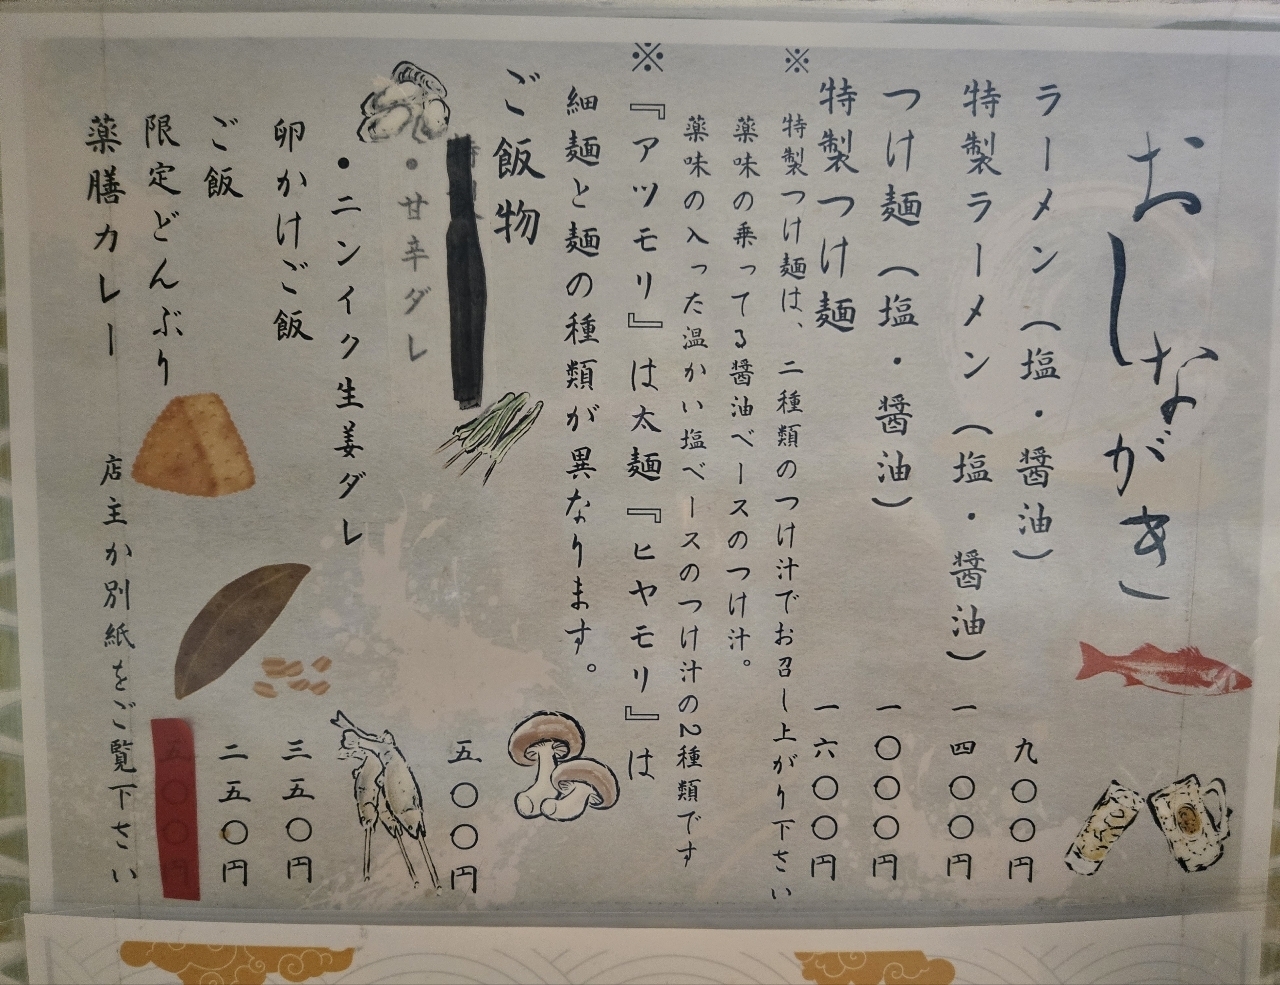 おしながき
ラーメン（塩・醤油） 九〇〇円
特製ラーメン（塩・醤油） 一四〇〇円
つけ麺（塩・醤油） 一〇〇〇円
特製つけ麺 一六〇〇円
※特製つけ麺は、二種類のつけ汁でお召し上がり下さい
薬味の乗ってる醤油ベースのつけ汁。
薬味の入った温かい塩ベースのつけ汁の2種類です
※『アツモリ』は太麺『ヒヤモリ』は
細麺と麺の種類が異なります。
ご飯物
五〇〇円
・甘辛ダレ
・ニンイク生姜ダレ
卵かけご飯 三五〇円
ご飯 二五〇円
限定どんぶり 五〇〇円
薬膳カレー 店主か別紙をご覧下さい